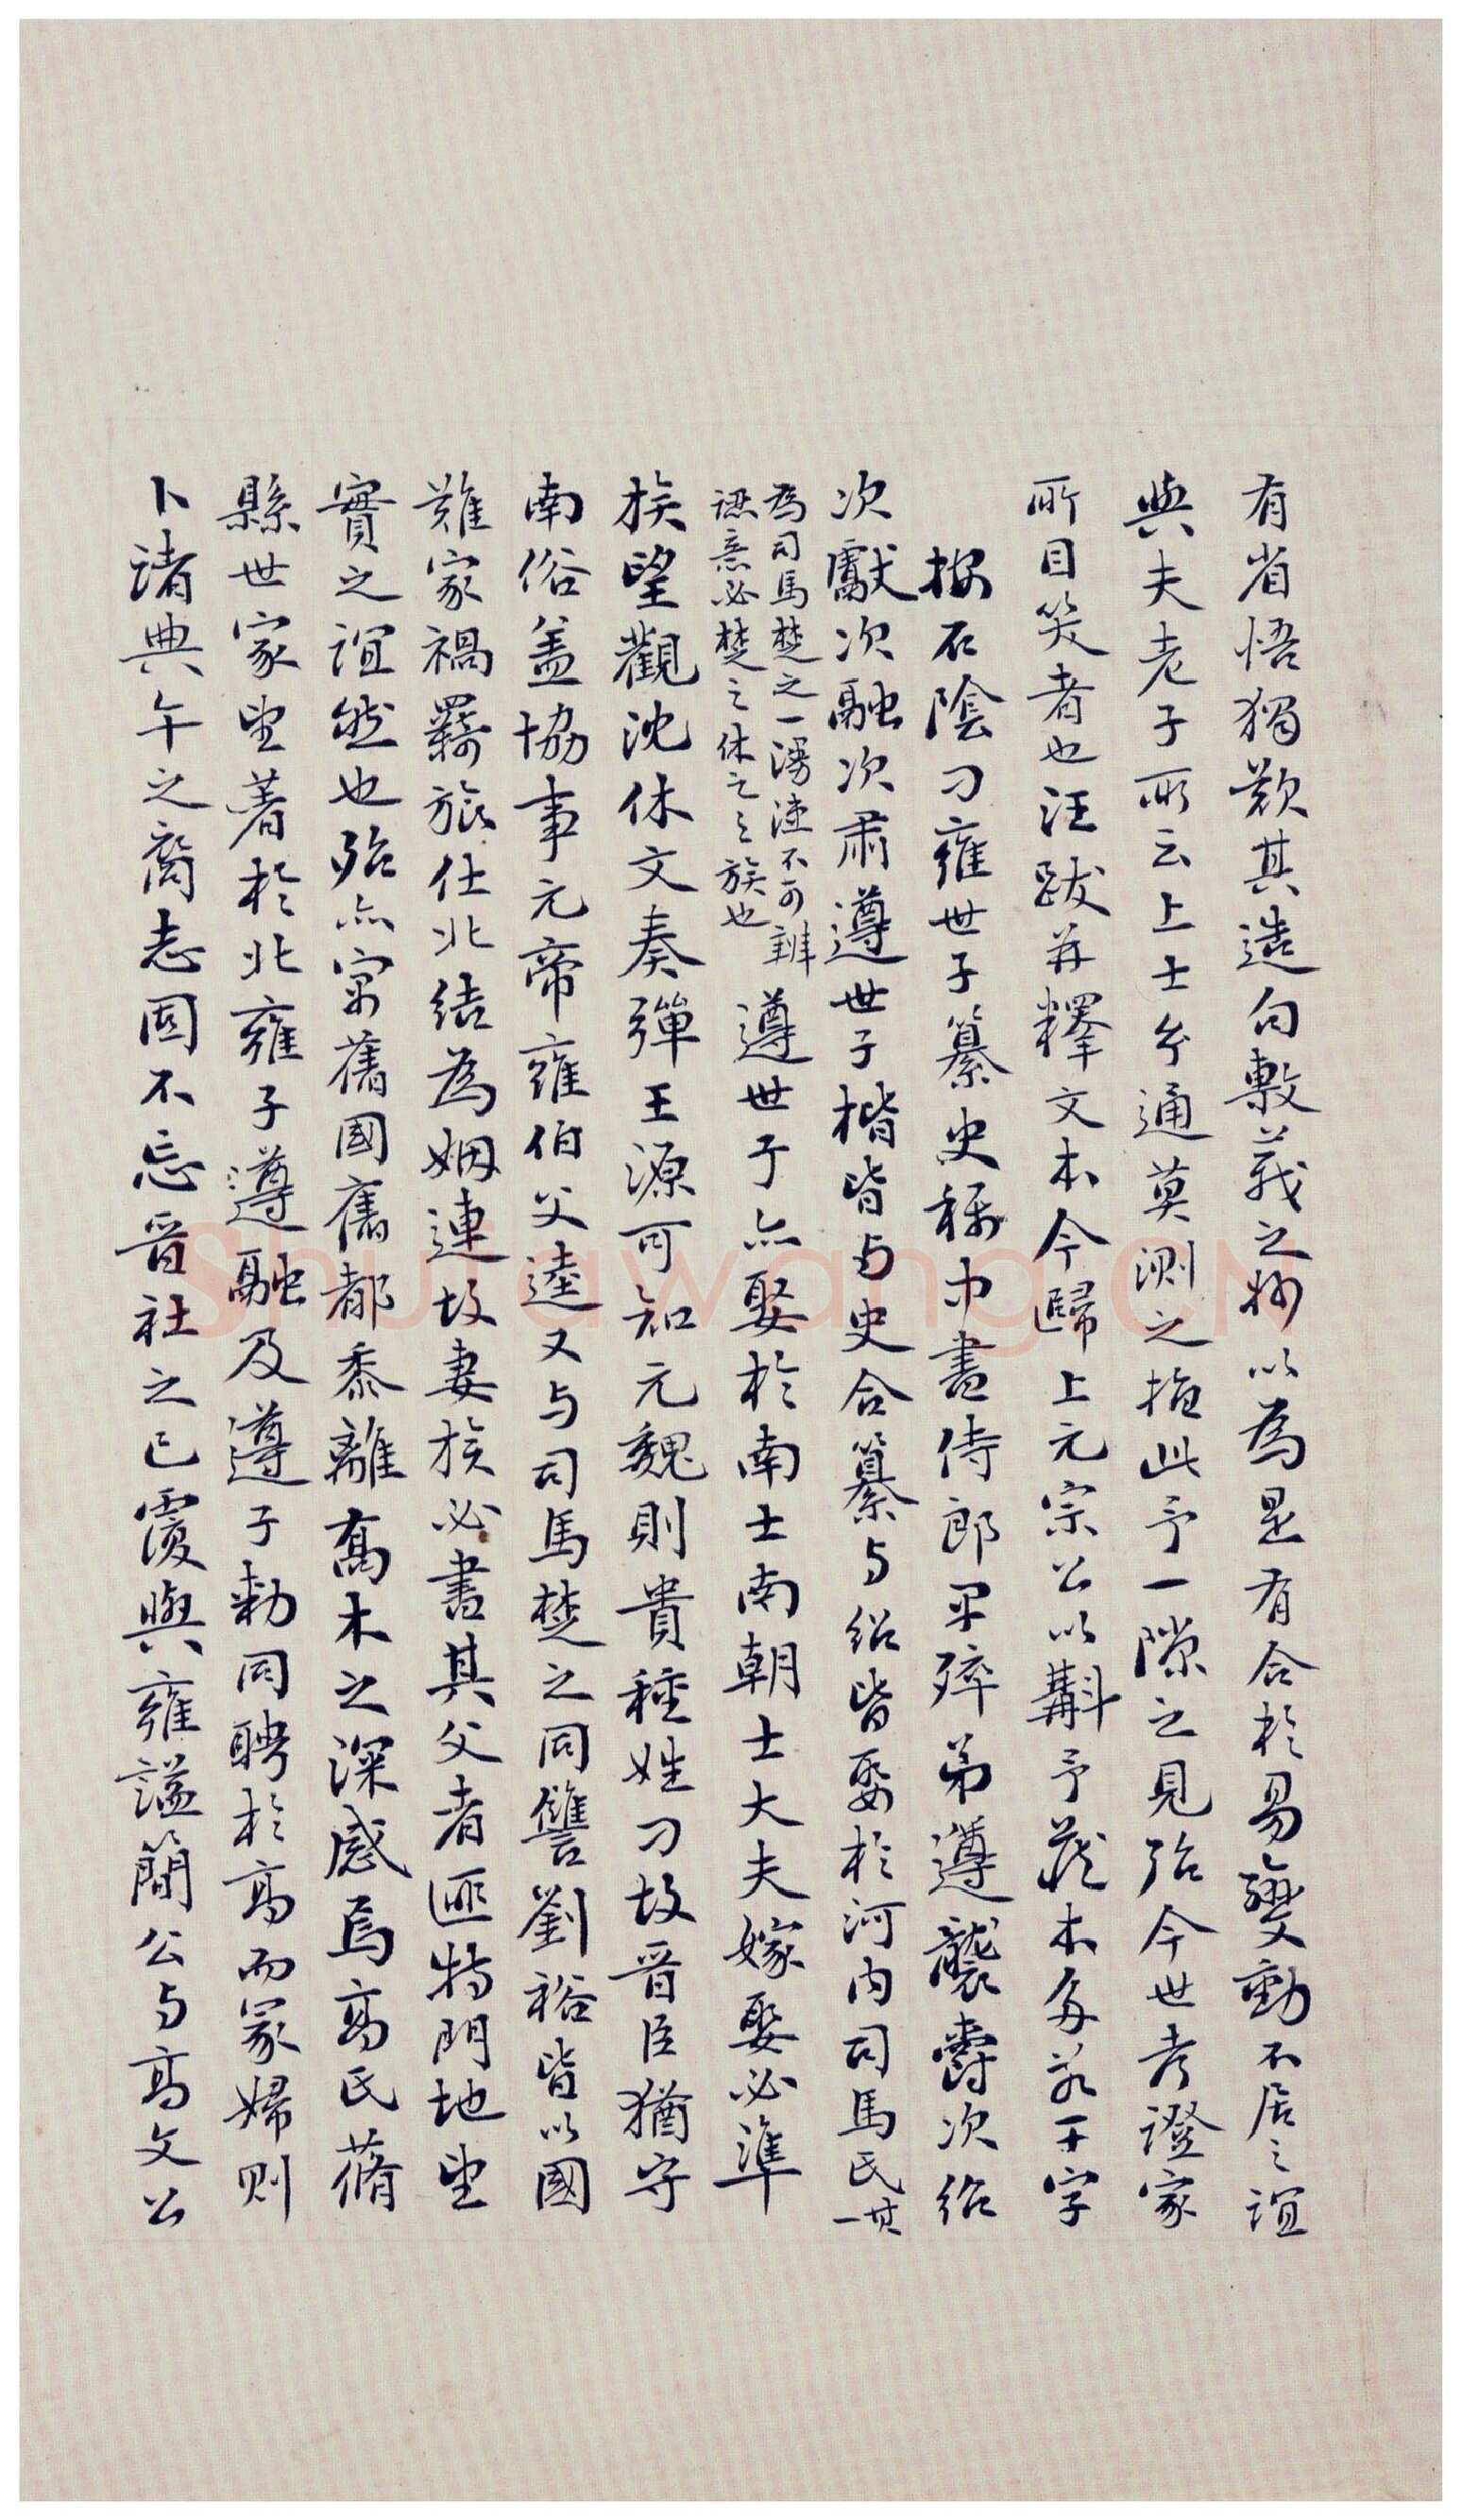 有省悟獨歎其造句敷義之妙以為是有合於易變動不居之誼
與夫老子所云上士兮通莫測之指此予一隙之見殆今世考證家
所目笑者也汪跋并釋文本今歸上元宗公以斠予藏本多若干字
按石陰刁雍世子纂史稱中書侍郎早殂弟遵襲爵次紹
次獻次融次肅遵世子楷皆与史合纂与紹皆娶於河內司馬氏其一
為司馬楚之一漫漶不可辨
諦意必楚之休之之族也
遵世子亦娶於南士南朝士大夫嫁娶必準
族望觀沈休文奏彈王源可知元魏則貴種姓刁故晉臣猶守
南俗盖協事元帝雍伯父逵又与司馬楚之同讐劉裕皆以國
難家禍羇旅仕北結為姻連故妻族必書其父者匪特門地望
實之誼然也殆亦寓舊國舊都黍離喬木之深感焉高氏蓨
縣世家望著於北雍子遵融及遵子勑同聘於高而冢婦則
卜諸典午之裔志固不忘晉社之已覆與雍謚簡公与高文公
Shufawang.CN